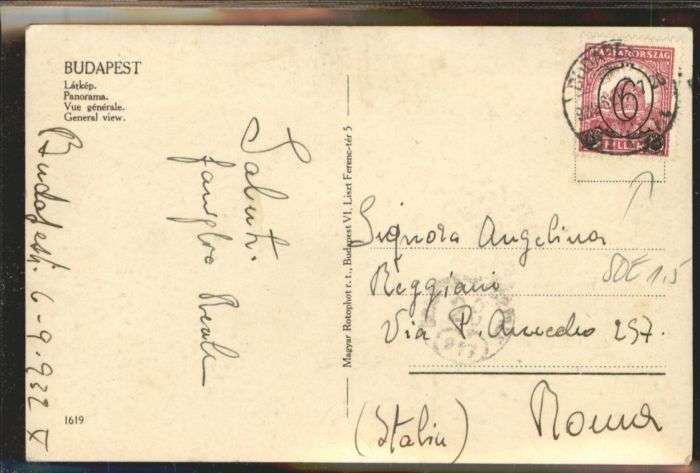 BUDAPEST
Látkép.
Panorama.
Vue générale.
General view.
Budapest. 6-9-932 X
1619
Saluti.
famiglia Reali
Magyar Rotophot r. t., Budapest VI, Liszt Ferenc-tér 5
MAGYARORSZÁG
6
Signora Angelina
Reggiani
Via P. Amedeo 257.
Roma
(Italia)